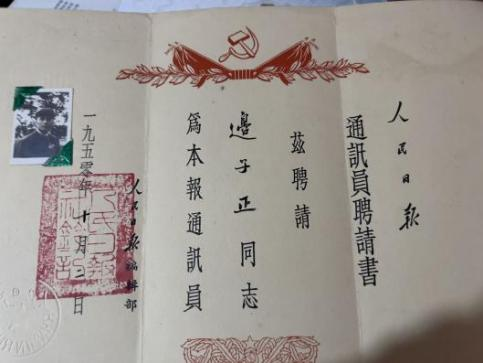 人民日報
通訊員聘請書
茲聘請
邊子正同志
爲本報通訊員
人民日報編輯部
一九五零年十月二日